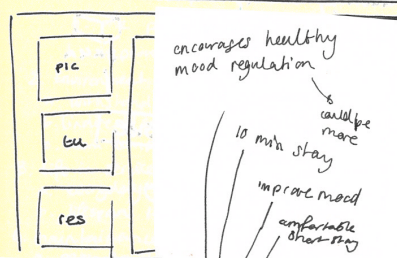 pic
res
encourages healthy
mood regulation
could be
more
10 min stay
improve mood
comfortable
short stay